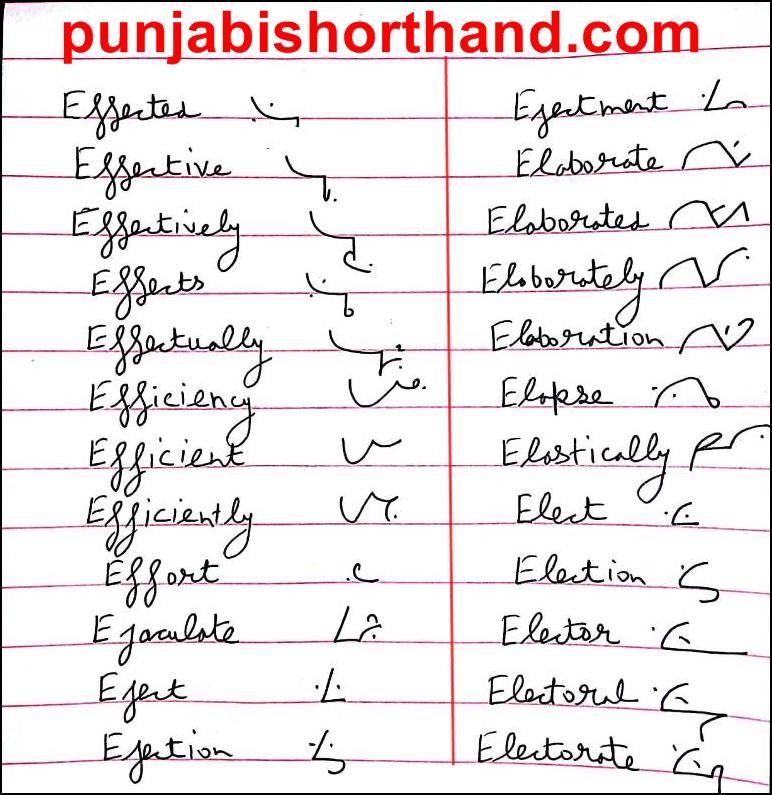 punjabishorthand.com
Effected
Effective
Effectively
Effects
Effectually
Efficiency
Efficient
Efficiently
Effort
Ejaculate
Eject
Ejection
Ejectment
Elaborate
Elaborated
Elaborately
Elaboration
Elapse
Elastically
Elect
Election
Elector
Electoral
Electorate